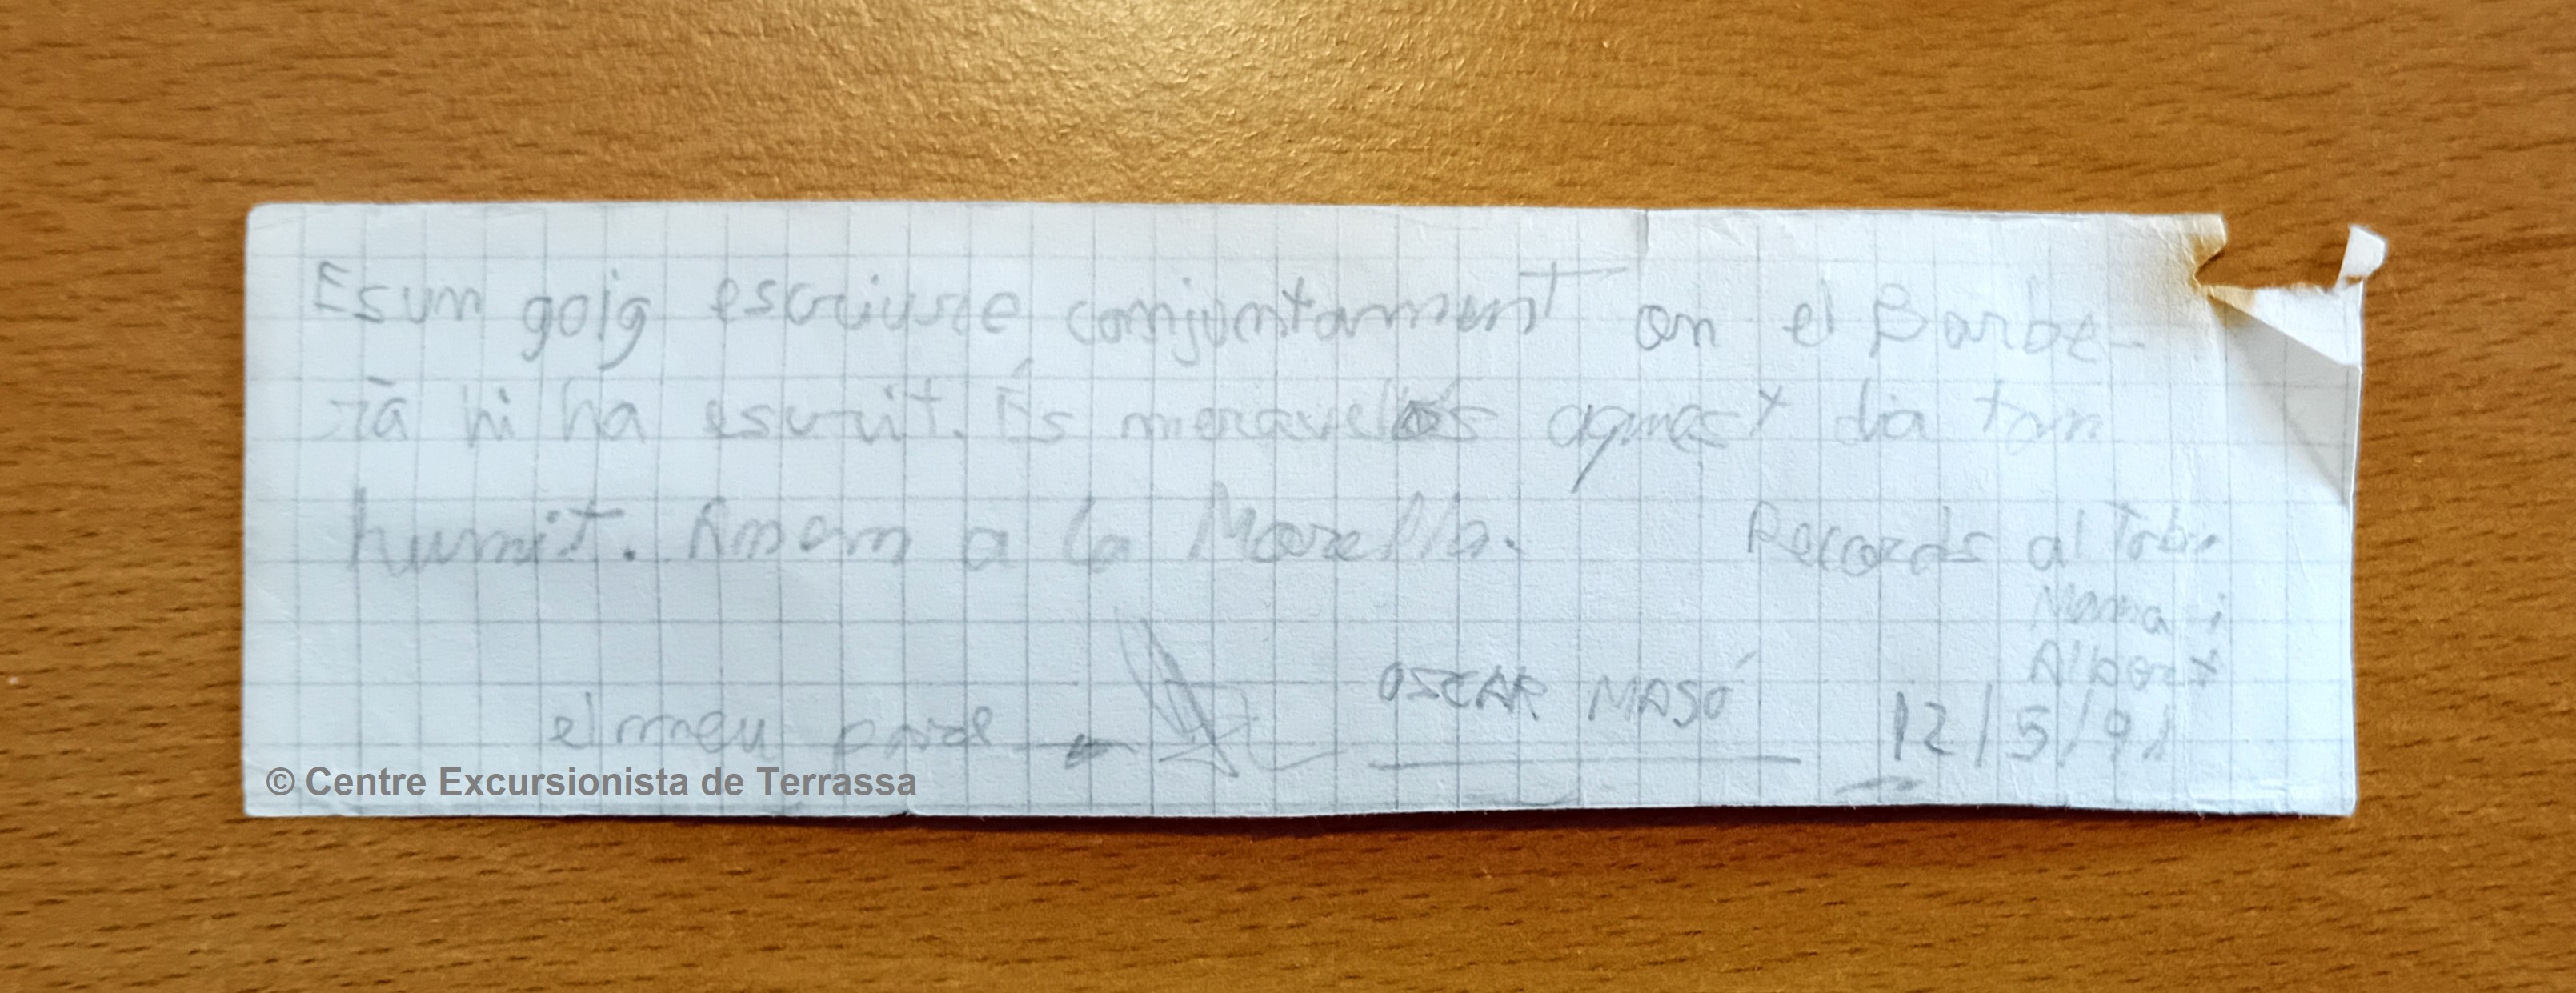 Es un goig escriuste conjuntament on el Barbe-
rà hi ha escrit. És meravellós aquest dia tan
humit. Anem a la Morella.
Records al
Mama i
Albert
el meu pare
OSCAR MASÓ
12/5/91
© Centre Excursionista de Terrassa